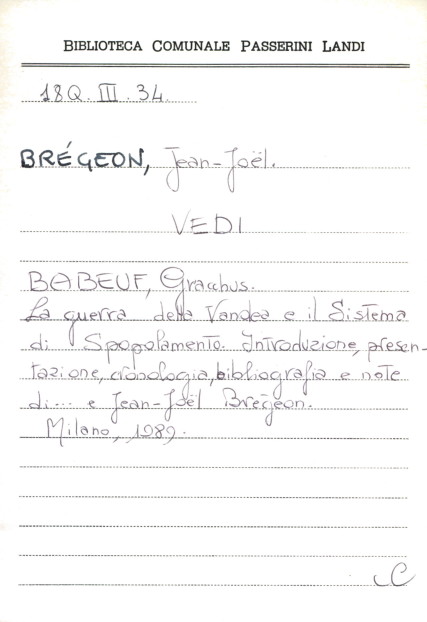 BIBLIOTECA COMUNALE PASSERINI LANDI
18Q. III. 34.
BRÉGEON, Jean-Joël.
VEDI
BABEUF, Gracchus.
La guerra della Vandea e il Sistema
di Spopolamento. Introduzione, presen-
tazione, cronologia, bibliografia e note
di... e Jean-Joël Brégeon.
Milano, 1989.
C